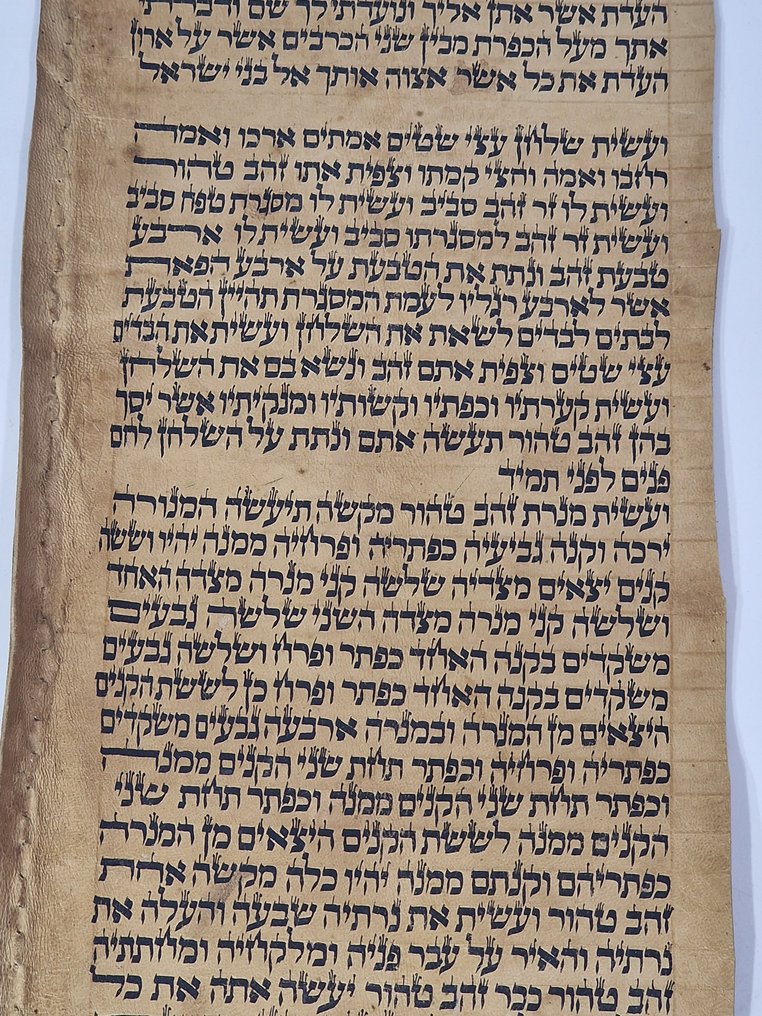 העדת אשר אתן אליך ונועדתי לך שם ודברתי
אתך מעל הכפרת מבין שני הכרבים אשר על ארון
העדת את כל אשר אצוה אותך אל בני ישראל
ועשית שלחן עצי שטים אמתים ארכו ואמה
רחבו ואמה וחצי קמתו וצפית אתו זהב טהור
ועשית לו זר זהב סביב ועשית לו מסגרת טפח סביב
ועשית זר זהב למסגרתו סביב ועשית לו ארבע
טבעת זהב ונתת את הטבעת על ארבע הפאת
אשר לארבע רגליו לעמת המסגרת תהיין הטבעת
לבתים לבדים לשאת את השלחן ועשית את הבדים
עצי שטים וצפית אתם זהב ונשא בם את השלחן
ועשית קערתיו וכפתיו וקשותיו ומנקיתיו אשר יסך
בהן זהב טהור תעשה אתם ונתת על השלחן לחם
פנים לפני תמיד
ועשית מנרת זהב טהור מקשה תיעשה המנורה
ירכה וקנה גביעיה כפתריה ופרחיה ממנה יהיו וששה
קנים יצאים מצדיה שלשה קני מנרה מצדה האחד
ושלשה קני מנרה מצדה השני שלשה גבעים
משקדים בקנה האחד כפתר ופרח ושלשה גבעים
משקדים בקנה האחד כפתר ופרח כן לששת הקנים
היצאים מן המנרה ובמנרה ארבעה גבעים משקדים
כפתריה ופרחיה וכפתר תחת שני הקנים ממנה
וכפתר תחת שני הקנים ממנה וכפתר תחת שני
הקנים ממנה לששת הקנים היצאים מן המנרה
כפתריהם וקנתם ממנה יהיו כלה מקשה אחת
זהב טהור ועשית את נרתיה שבעה והעלה את
נרתיה והאיר על עבר פניה ומלקחיה ומחתתיה
זהב טהור ככר זהב טהור יעשה אתה את כל